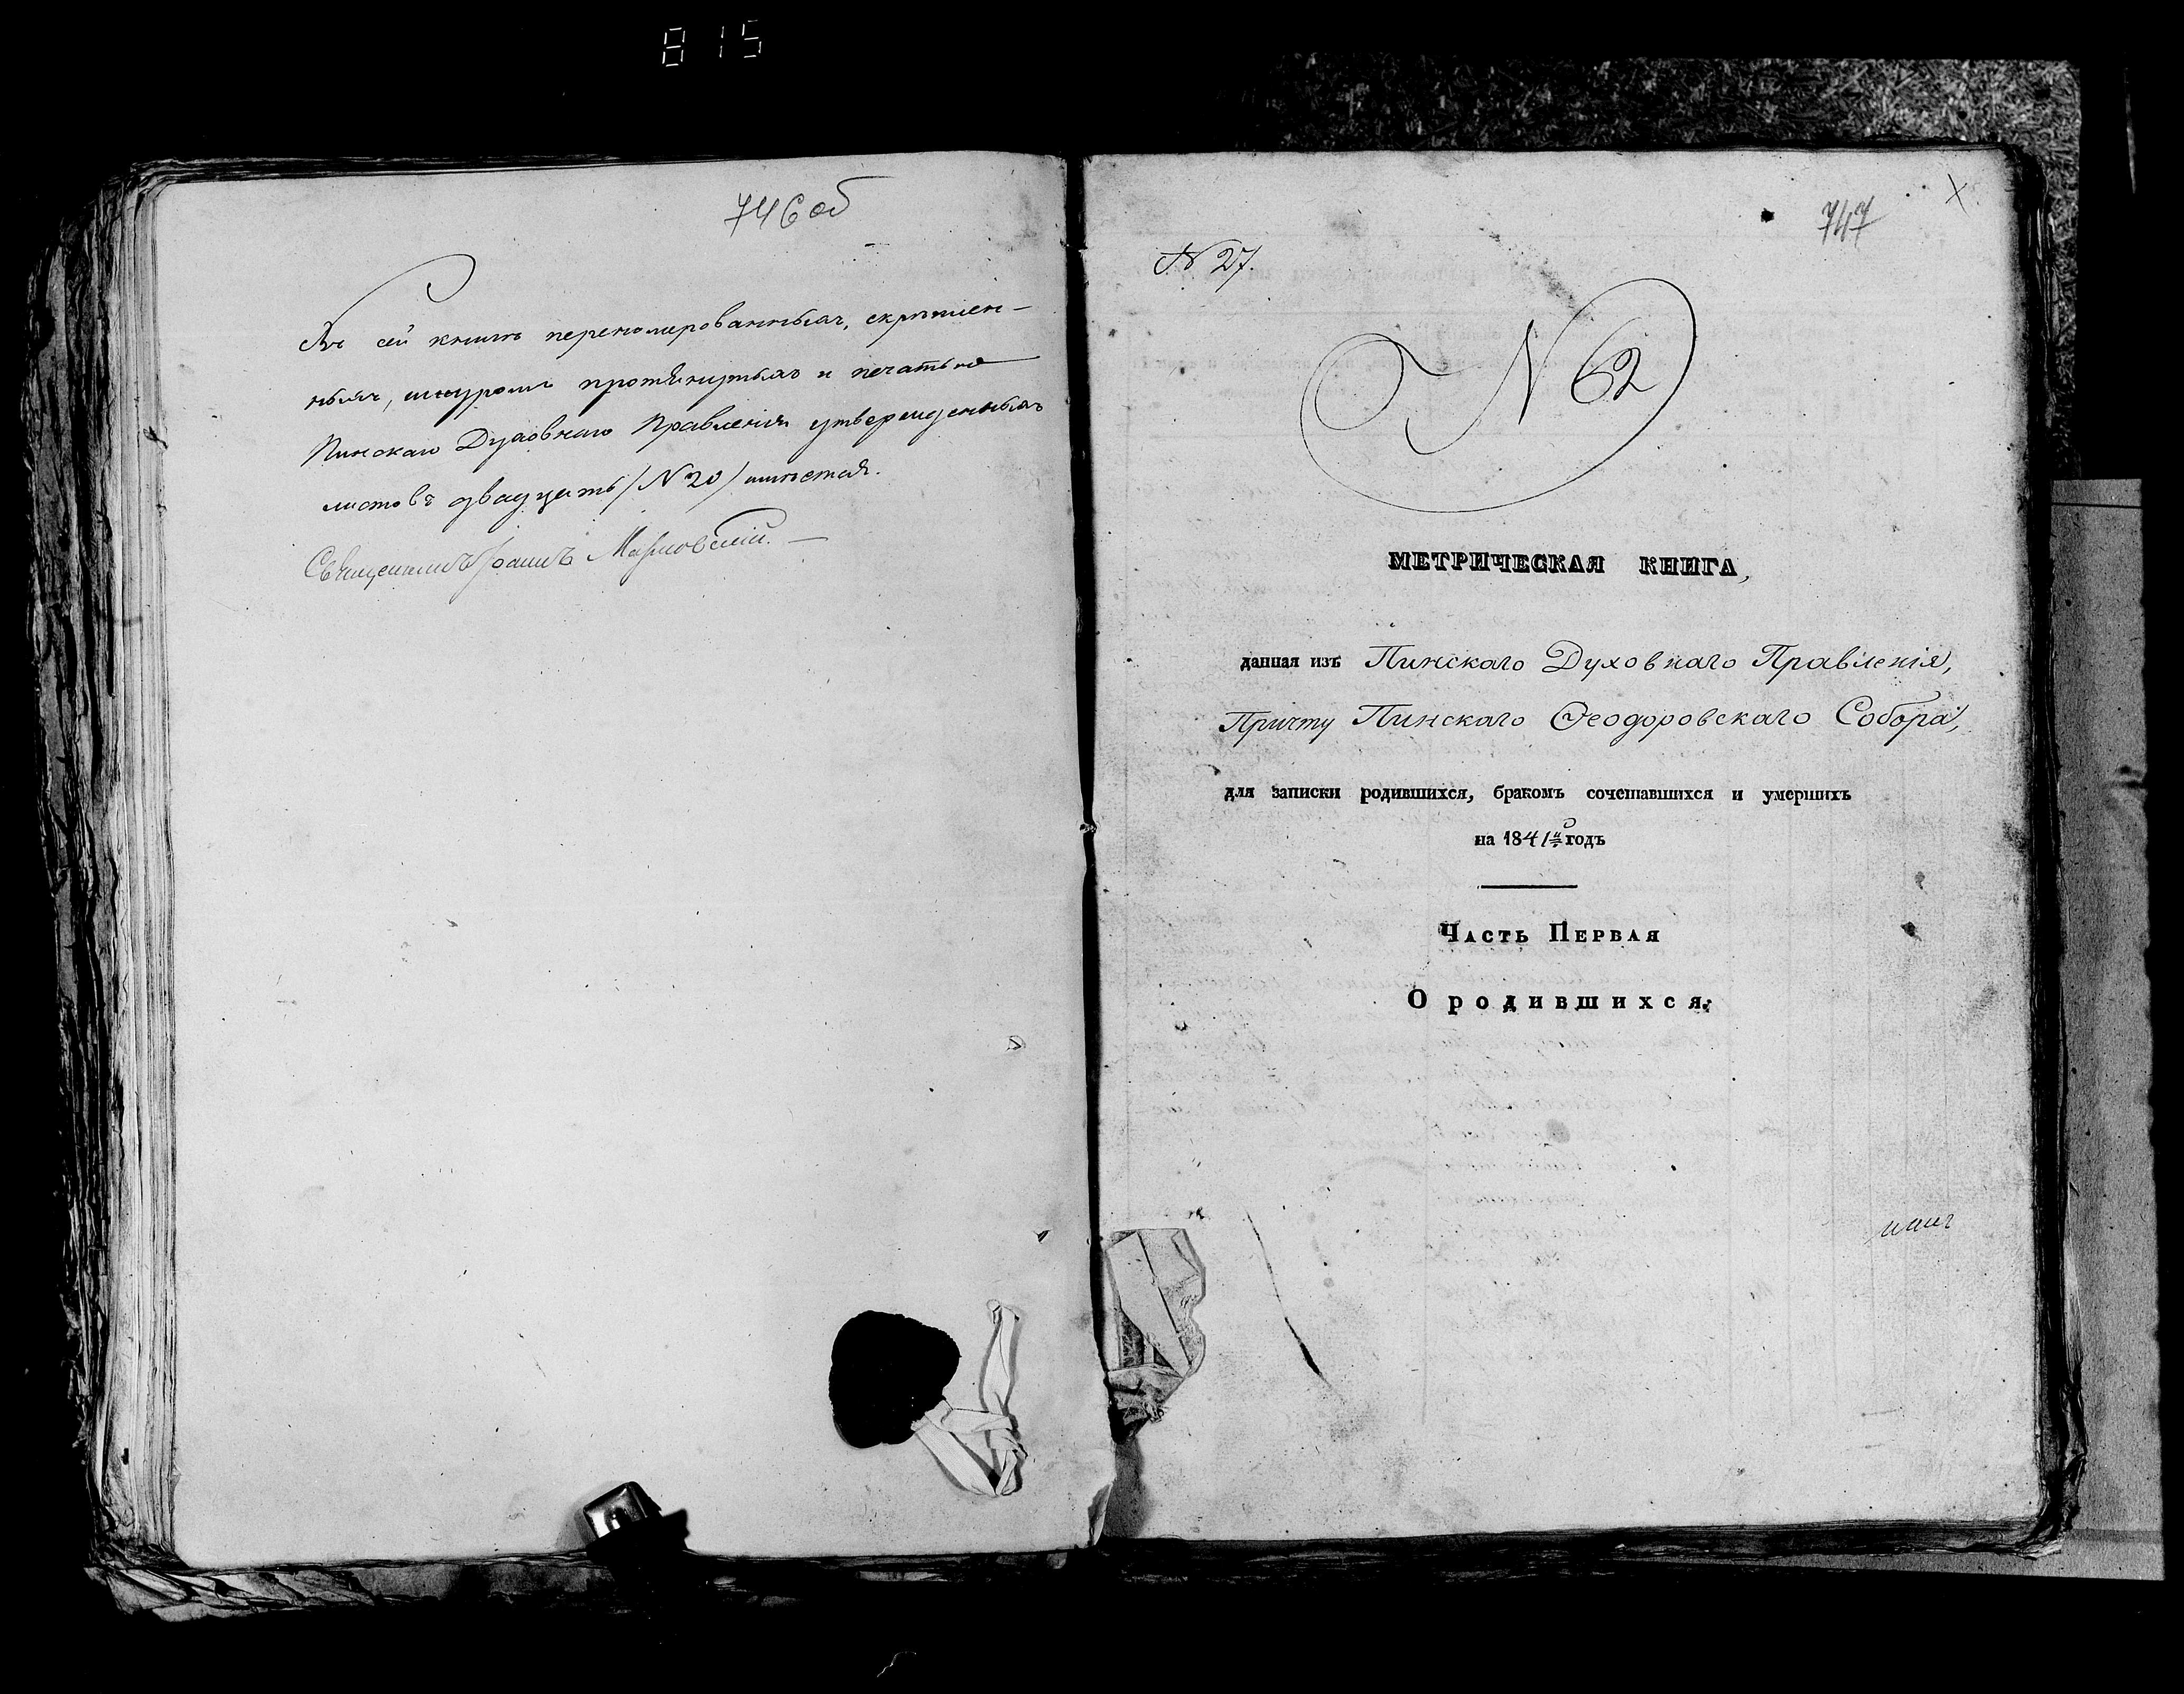 815
746 об
Въ сей книгѣ перенумерованныхъ, скрѣплен-
ныхъ, шнуромъ протянутыхъ и печатью
Пинскаго Духовнаго Правленія утвержденныхъ
листовъ двадцать (N 20) имѣется.
Священникъ Іоаннъ
747
N 27.
N 62
МЕТРИЧЕСКАЯ КНИГА,
данная изъ Пинскаго Духовнаго Правленія,
Причту Пинскаго Ѳеодоровскаго Собора,
для записки родившихся, бракомъ сочетавшихся и умершихъ
на 1841й годъ
Часть Первая
О родившихся.